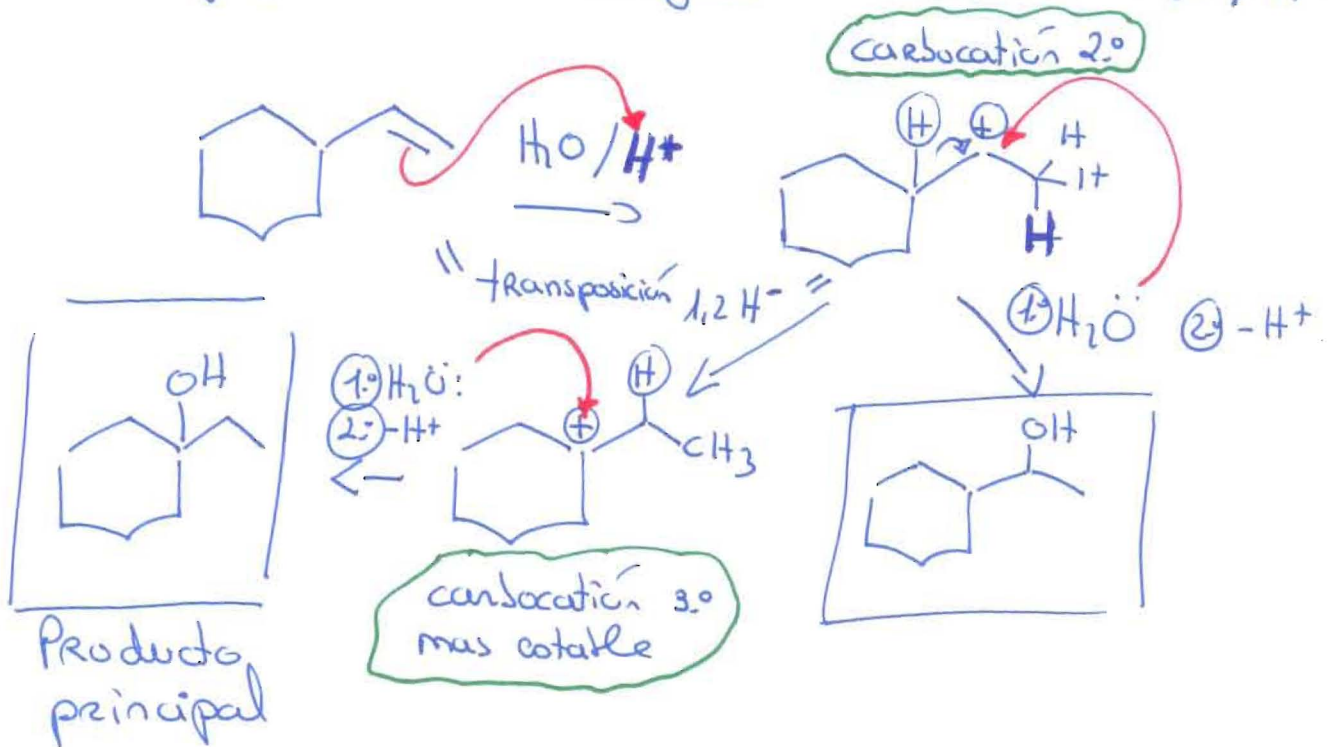 carbocatión 2º
H₂O / H⁺
H
+
H
H
H
"transposición 1,2 H⁻"
1º H₂Ö 2º - H⁺
OH
1º H₂Ö:
2º -H⁺
+
H
CH₃
OH
carbocatión 3º
mas estable
Producto
principal